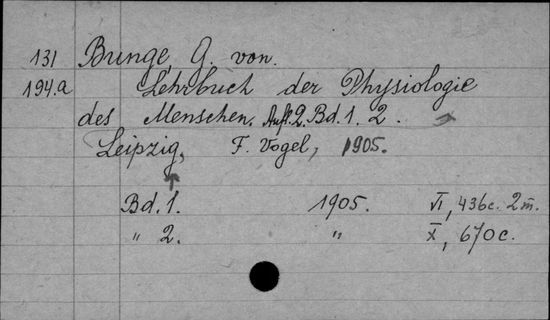 131 Bunge, G. von.
194.a Lehrbuch der Physiologie
des Menschen. Aufl.2. Bd. 1. 2.
Leipzig, F. Vogel, 1905.
Bd. 1. 1905. VI, 436c. 2 т.
„ 2. „ X, 670c.